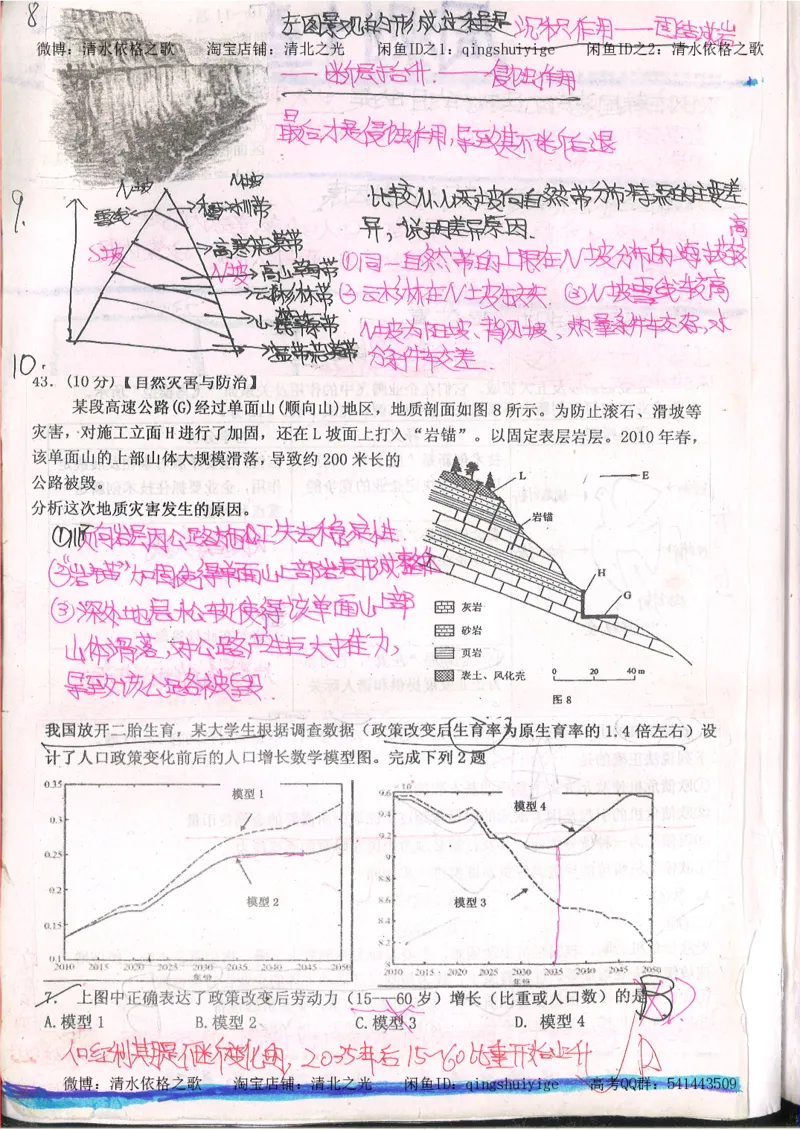 8
左图景观的形成过程是 沉积作用——固结成岩
微博：清水依格之歌 淘宝店铺：清北之光 闲鱼ID之1：qingshuiyige 闲鱼ID之2：清水依格之歌
——断层抬升——侵蚀作用
最后才是侵蚀作用，导致其不断后退
9.
N坡
雪线
S坡
N坡
积雪冰川带
高寒荒漠带
高山草甸带
云杉林带
山麓草原带
温带荒漠带
比较N、S两坡向自然带分布特点的主要差
异，说明差异原因.
①同一自然带的上限在N坡分布的海拔较高
②云杉林在N坡缺失 ③N坡雪线较高
N坡为阳坡、背风坡，热量条件较好，水
分条件较差.
10.
43．(10 分)【自然灾害与防治】
某段高速公路(G)经过单面山(顺向山)地区，地质剖面如图 8 所示。为防止滚石、滑坡等
灾害，对施工立面 H 进行了加固，还在 L 坡面上打入“岩锚”。以固定表层岩层。2010 年春，
该单面山的上部山体大规模滑落，导致约 200 米长的
公路被毁。
分析这次地质灾害发生的原因。
①顺向岩层因公路施工失去稳定性
②“岩锚”加固使得单面山上部岩层形成整体
③深处地层松软使得该单面山上部
山体滑落，对公路产生巨大推力，
导致该公路被毁.
L
E
岩锚
H
G
灰岩
砂岩
页岩
表土、风化壳
0 20 40 m
图 8
我国放开二胎生育，某大学生根据调查数据（政策改变后生育率为原生育率的 1.4 倍左右）设
计了人口政策变化前后的人口增长数学模型图。完成下列 2 题
0.35
0.3
0.25
0.2
0.15
0.1
模型 1
模型 2
2010 2015 2020 2025 2030 2035 2040 2045 2050
年份
9.6
9.4
9.2
9
8.8
8.6
8.4
8.2
模型 4
模型 3
2010 2015 2020 2025 2030 2035 2040 2045 2050
年份
7． 上图中正确表达了政策改变后劳动力（15—60 岁）增长（比重或人口数）的是 B D
A.模型 1 B.模型 2 C.模型 3 D. 模型 4
2035年后15-60比重开始上升 D
微博：清水依格之歌 淘宝店铺：清北之光 闲鱼ID之1：qingshuiyige 高考QQ群：541443509